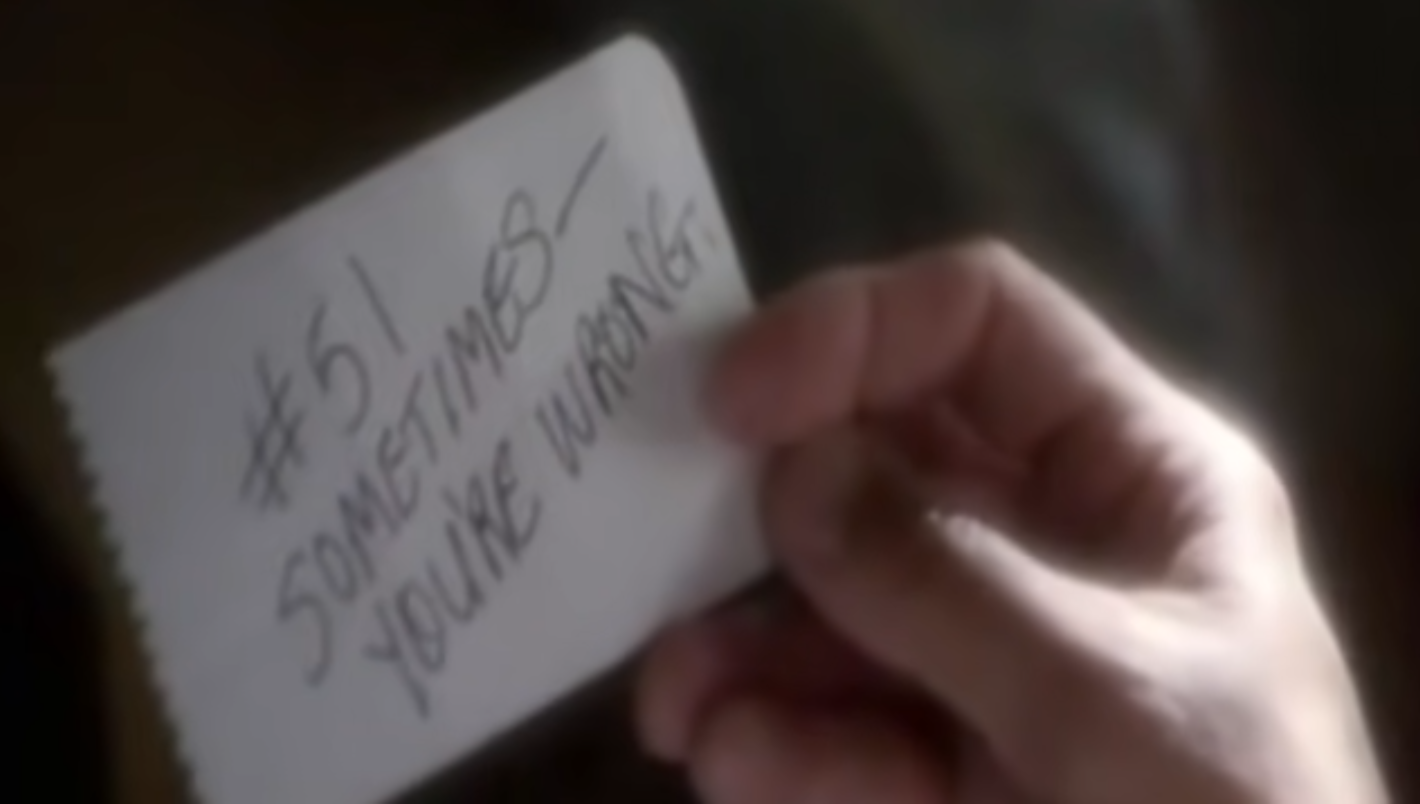 #51
SOMETIMES—
YOU'RE WRONG.